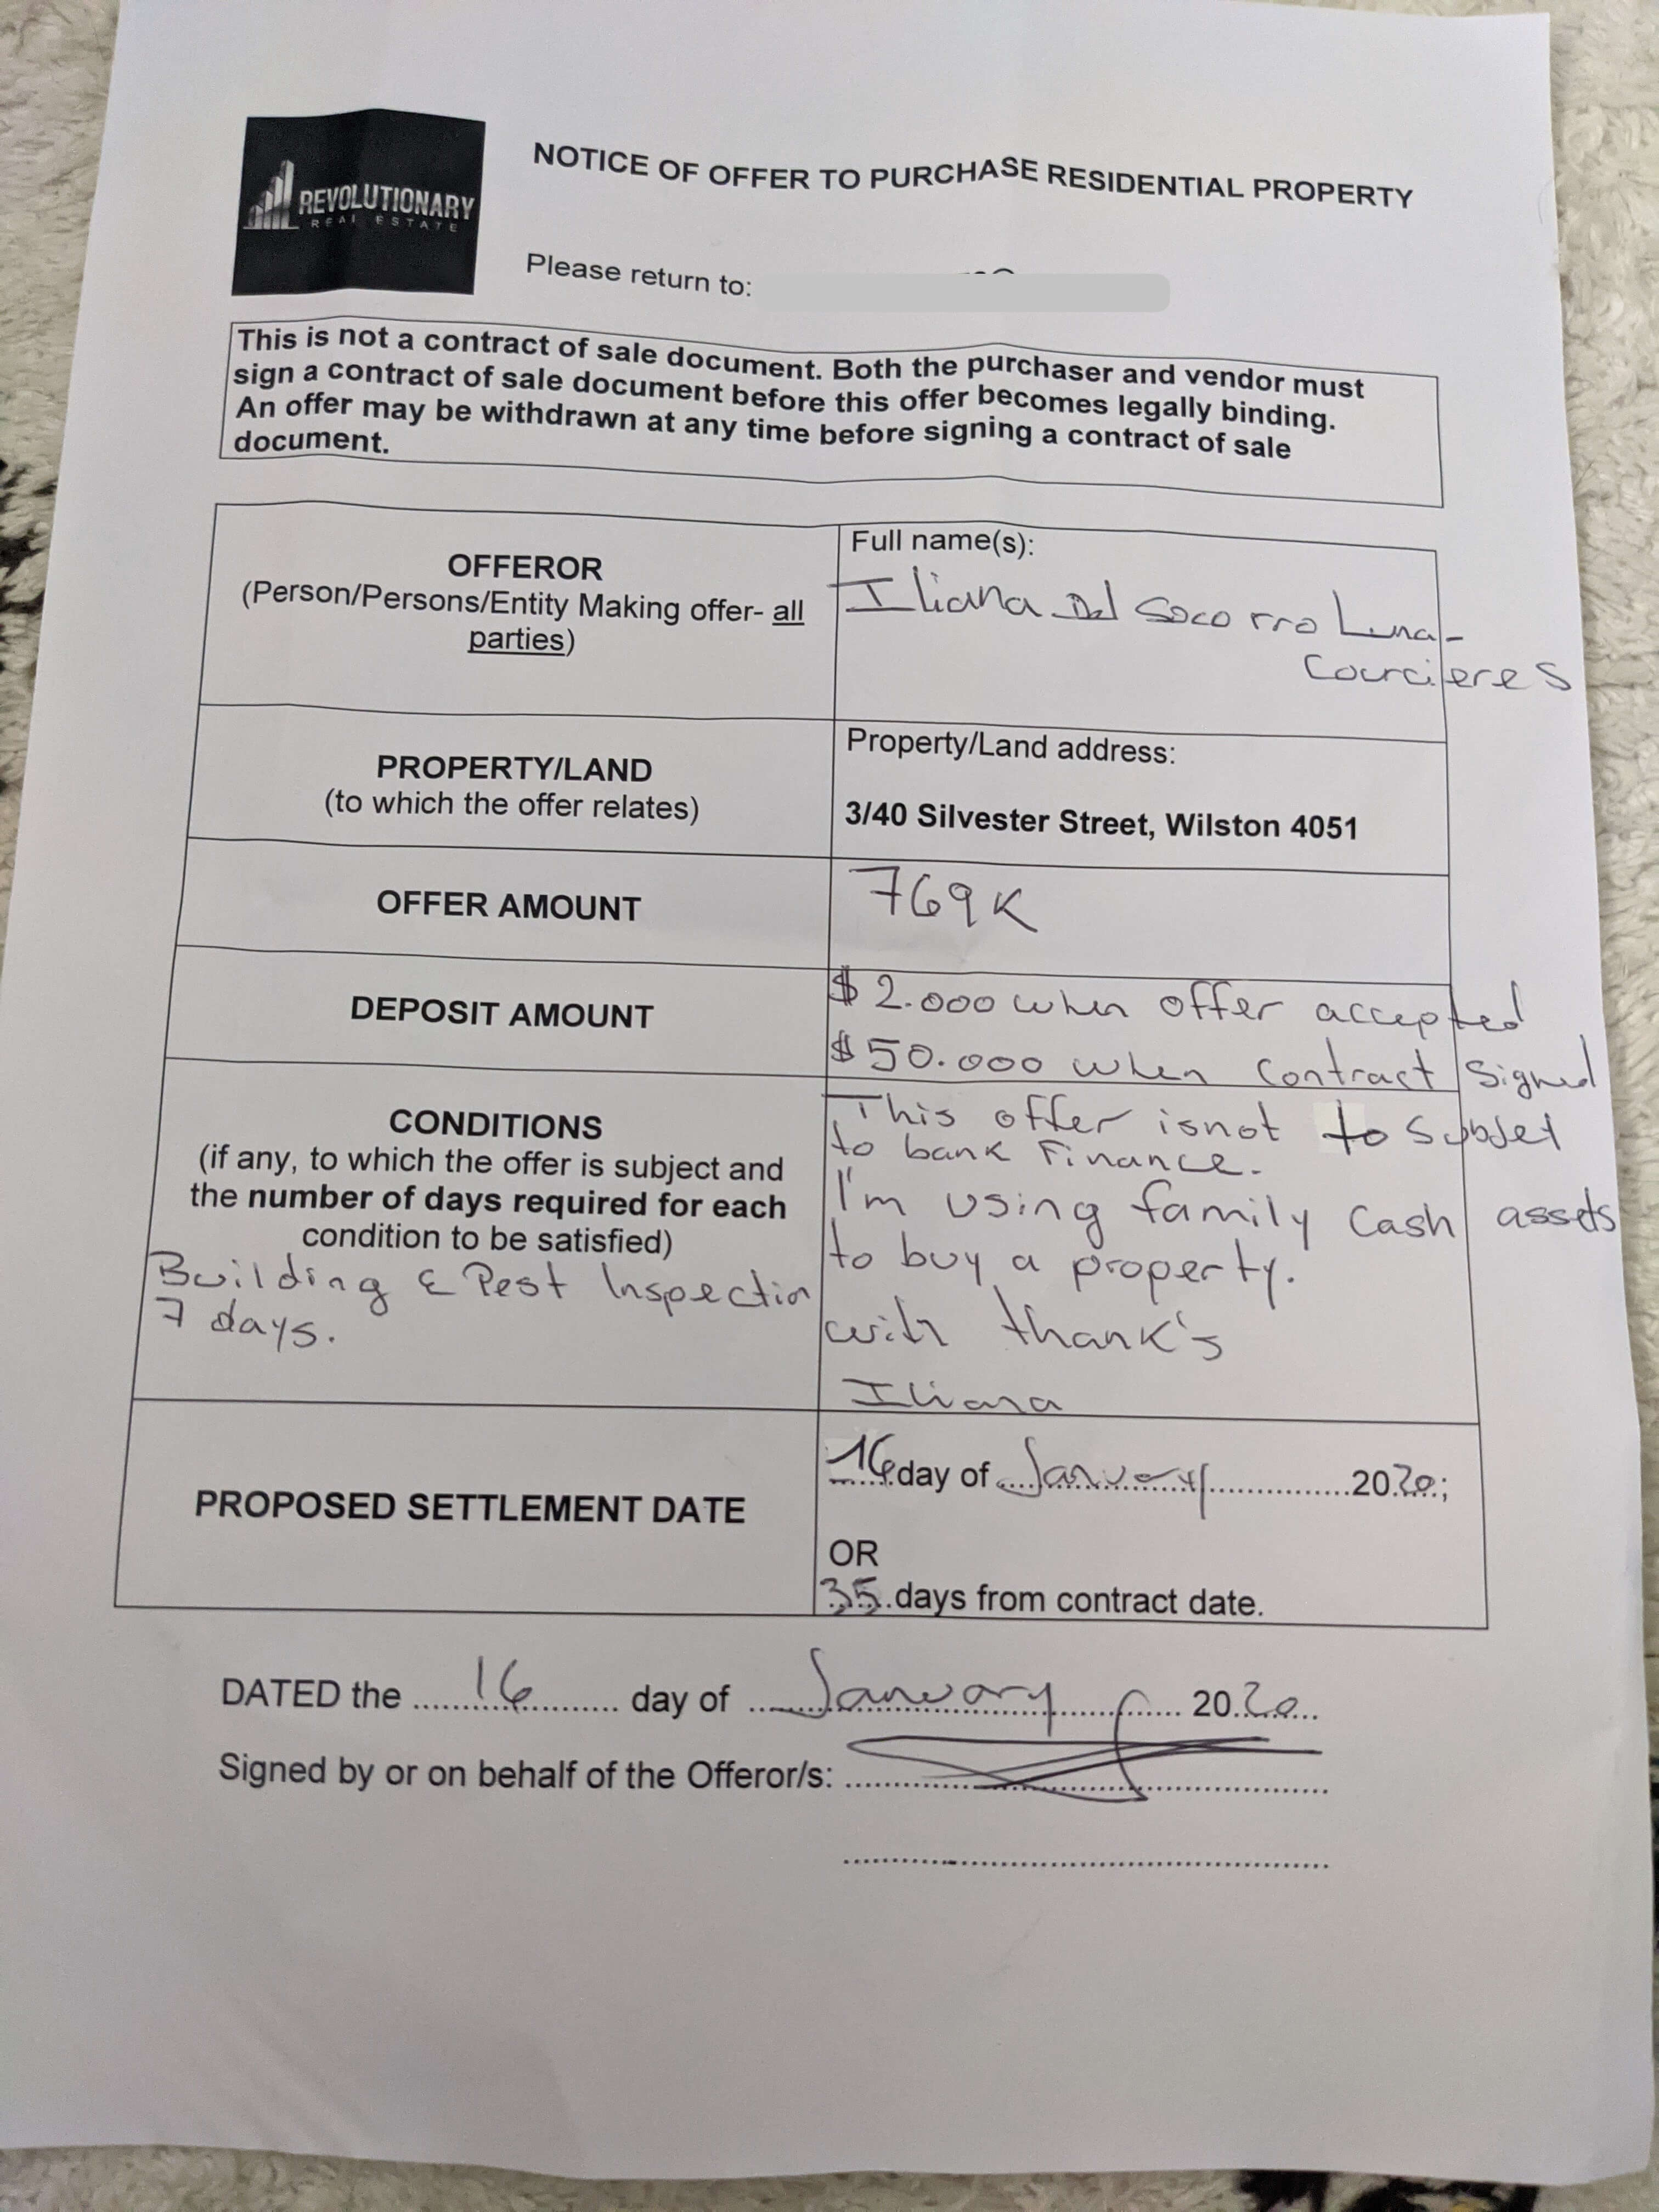 REVOLUTIONARY
REAL ESTATE
NOTICE OF OFFER TO PURCHASE RESIDENTIAL PROPERTY
Please return to:
This is not a contract of sale document. Both the purchaser and vendor must
sign a contract of sale document before this offer becomes legally binding.
An offer may be withdrawn at any time before signing a contract of sale
document.
OFFEROR
(Person/Persons/Entity Making offer- all
parties)
Full name(s):
Iliana Del Socorro Luna-
Courcieres
PROPERTY/LAND
(to which the offer relates)
Property/Land address:
3/40 Silvester Street, Wilston 4051
OFFER AMOUNT
769K
DEPOSIT AMOUNT
$2.000 when offer accepted
$50.000 when contract signed
CONDITIONS
(if any, to which the offer is subject and
the number of days required for each
condition to be satisfied)
Building & Pest Inspection
7 days.
This offer is not to
to bank Finance.
I'm using family cash assets
to buy a property.
with thank's
Iliana
PROPOSED SETTLEMENT DATE
16 day of January 2020;
OR
35 days from contract date.
DATED the 16 day of January 2020
Signed by or on behalf of the Offeror/s: